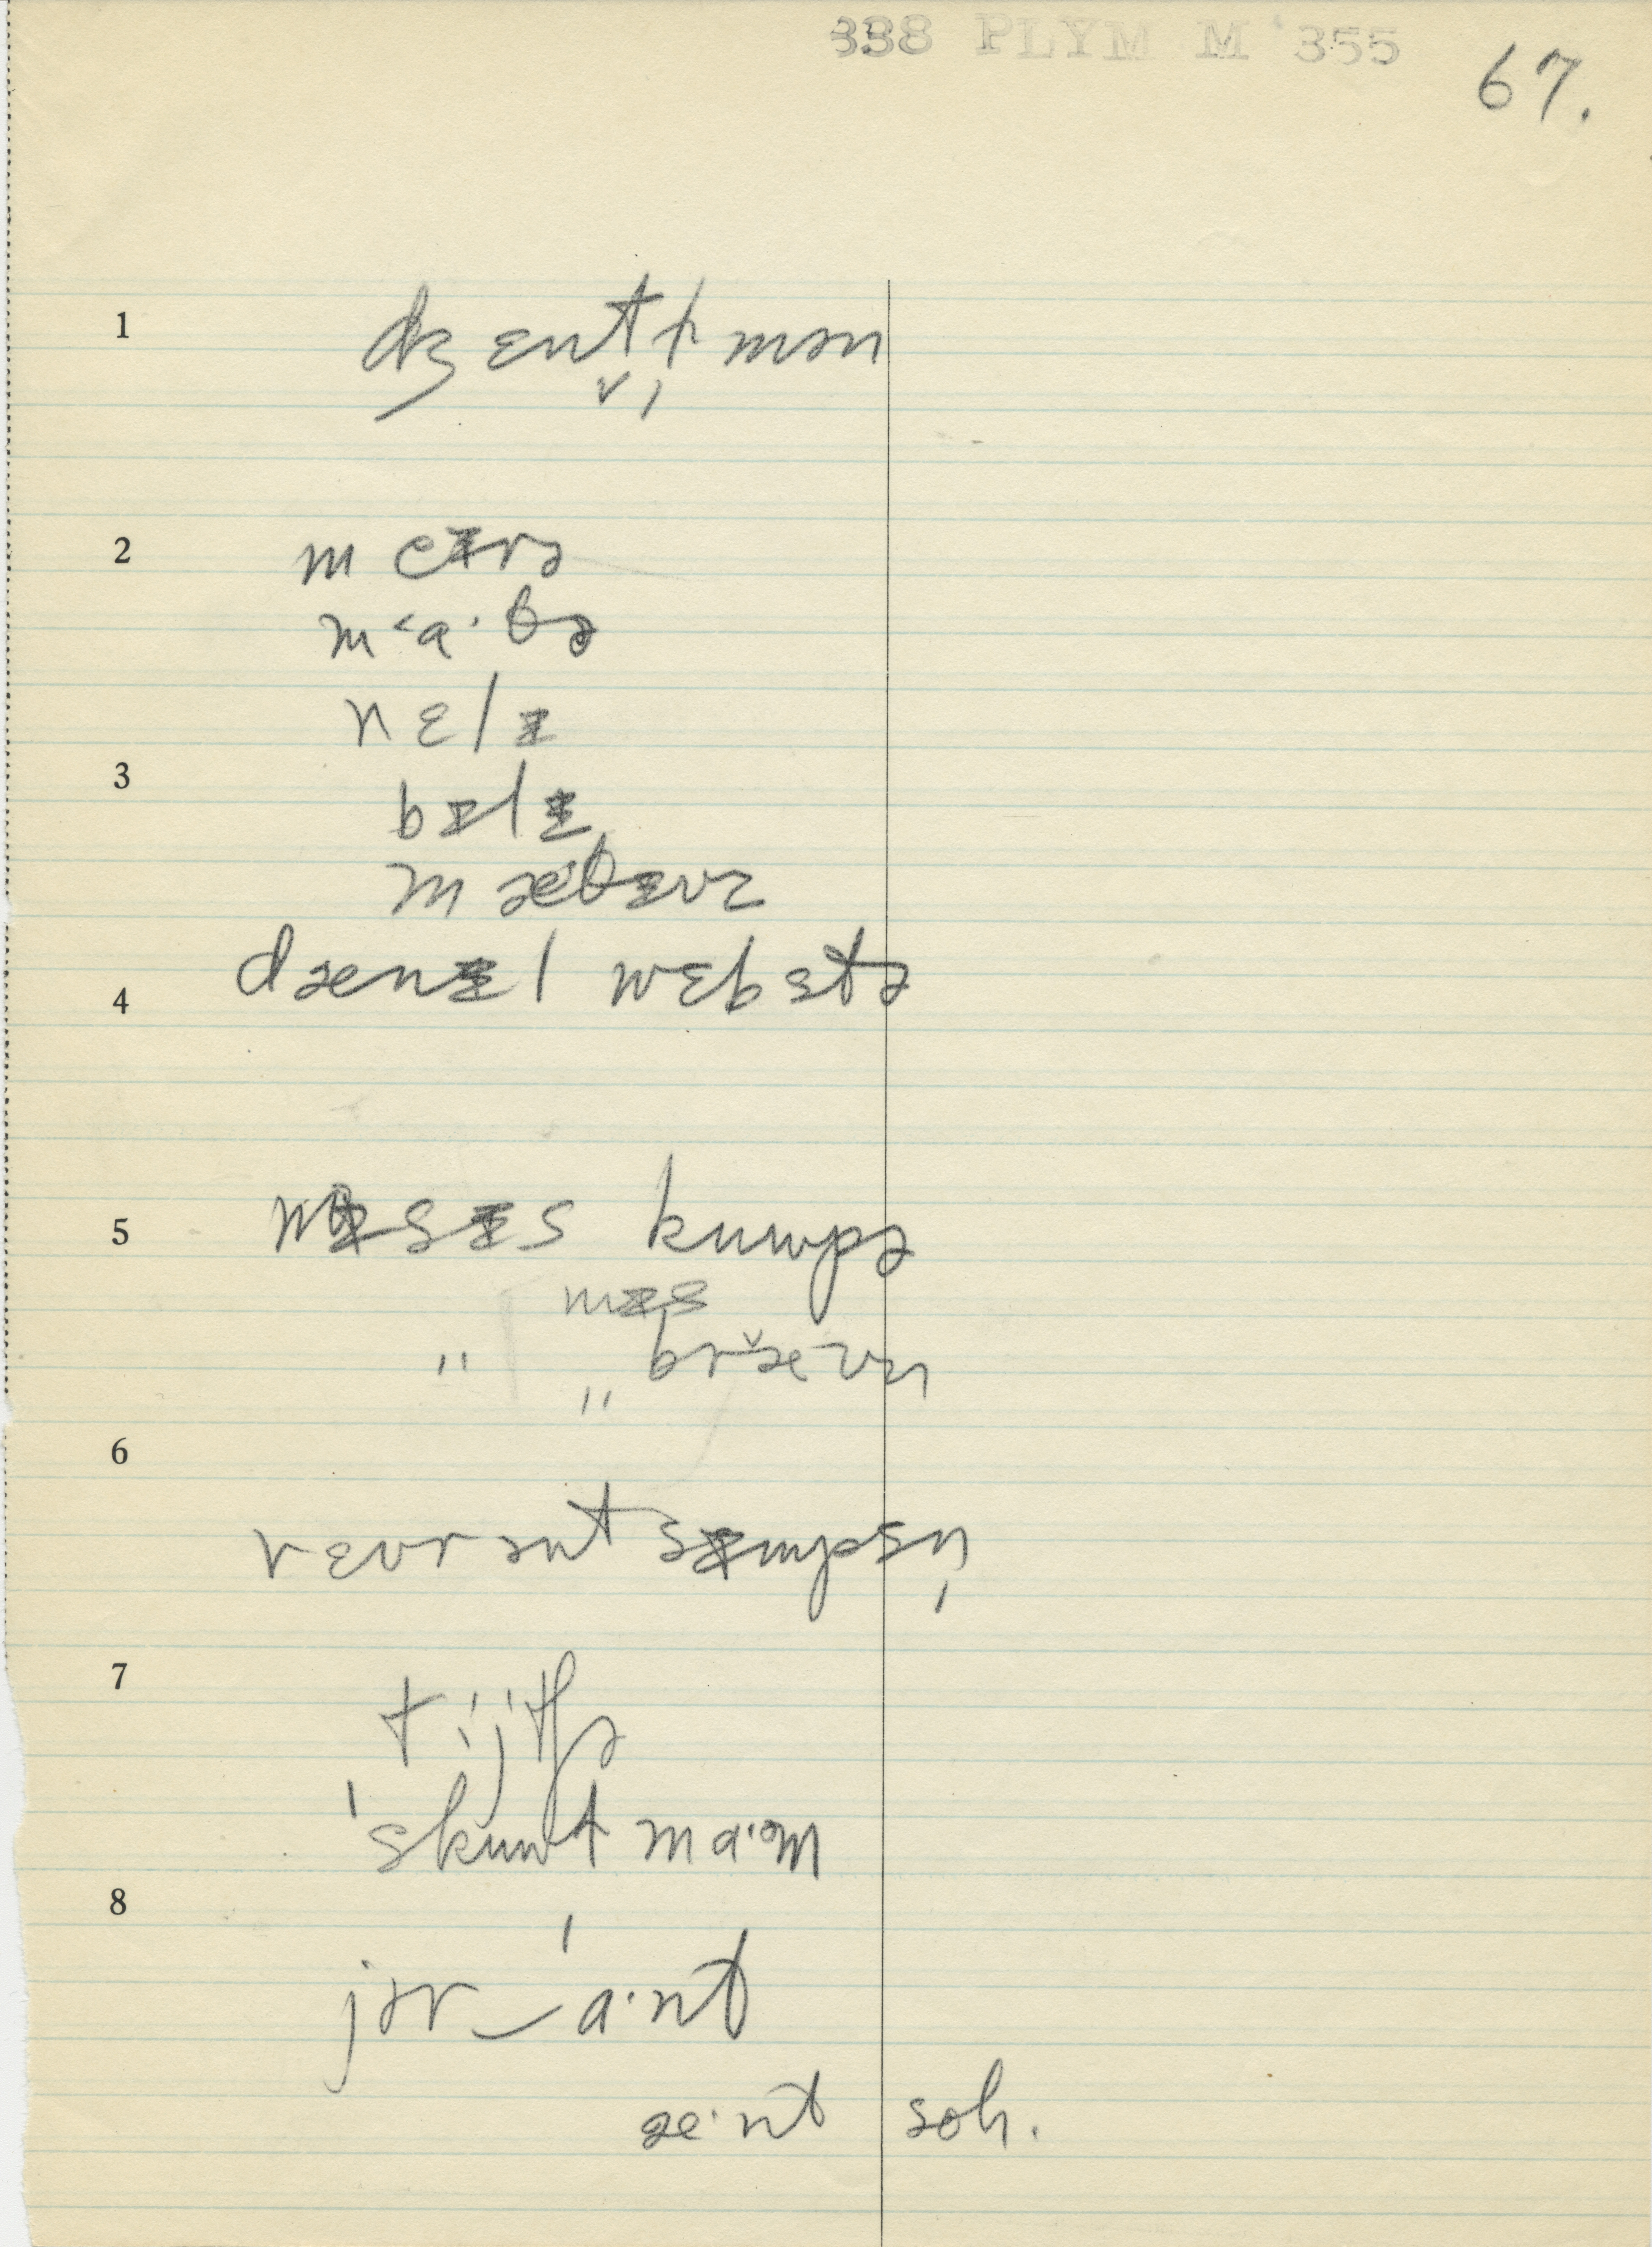 338 PLYM M '355
67.
1 dʒɛnt̬ɫ̩mən
2 meɪrə
m˂a·θə
nɛlɪ
3 bɪlɪ
mæ·θɪuz
4 dænɪɛl wɛbstə
5 mɪsɪs kuwpə
mɪs
" " bræ̆ʊn
6
rɛvrənt sɪmpsn̩
7 ti'jtʃə
'skuwt ma·əm
8
jər‿'a·nt
æ·nt soh.